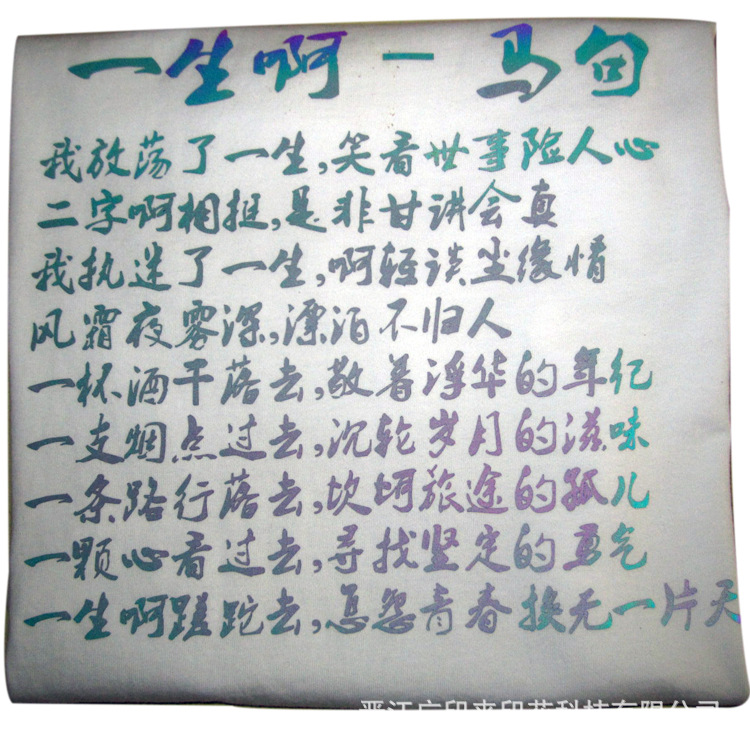 一生啊 — 马句
我放荡了一生,笑看世事险人心
二字啊相挺,是非甘讲会真
我执迷了一生,啊轻谈尘缘情
风霜夜雾深,漂泊不归人
一杯酒干落去,敬着浮华的年纪
一支烟点过去,沉轮岁月的滋味
一条路行落去,坎坷旅途的孤儿
一颗心看过去,寻找坚定的勇气
一生啊蹉跎去,怎怨青春换无一片天